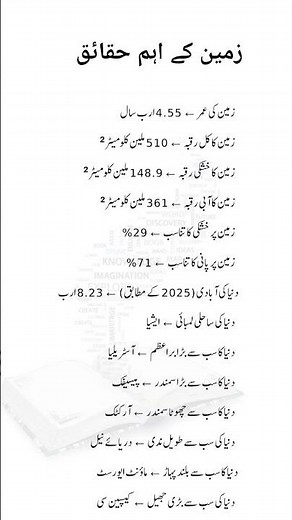 زمین کے اہم حقائق
زمین کی عمر ← 4.55 ارب سال
زمین کا کل رقبہ ← 510 ملین کلومیٹر²
زمین کا خشکی رقبہ ← 148.9 ملین کلومیٹر²
زمین کا آبی رقبہ ← 361 ملین کلومیٹر²
زمین پر خشکی کا تناسب ← 29%
زمین پر پانی کا تناسب ← 71%
دنیا کی آبادی (2025 کے مطابق) ← 8.23 ارب
دنیا کی ساحلی لمبائی ← ایشیا
دنیا کا سب سے بڑا براعظم ← آسٹریلیا
دنیا کا سب سے بڑا سمندر ← پیسیفک
دنیا کا سب سے چھوٹا سمندر ← آرکٹک
دنیا کی سب سے طویل ندی ← دریائے نیل
دنیا کا سب سے بلند پہاڑ ← ماؤنٹ ایورسٹ
دنیا کی سب سے بڑی جھیل ← کیسپین سی
DISCOVER
KNOW
IMAGINATION